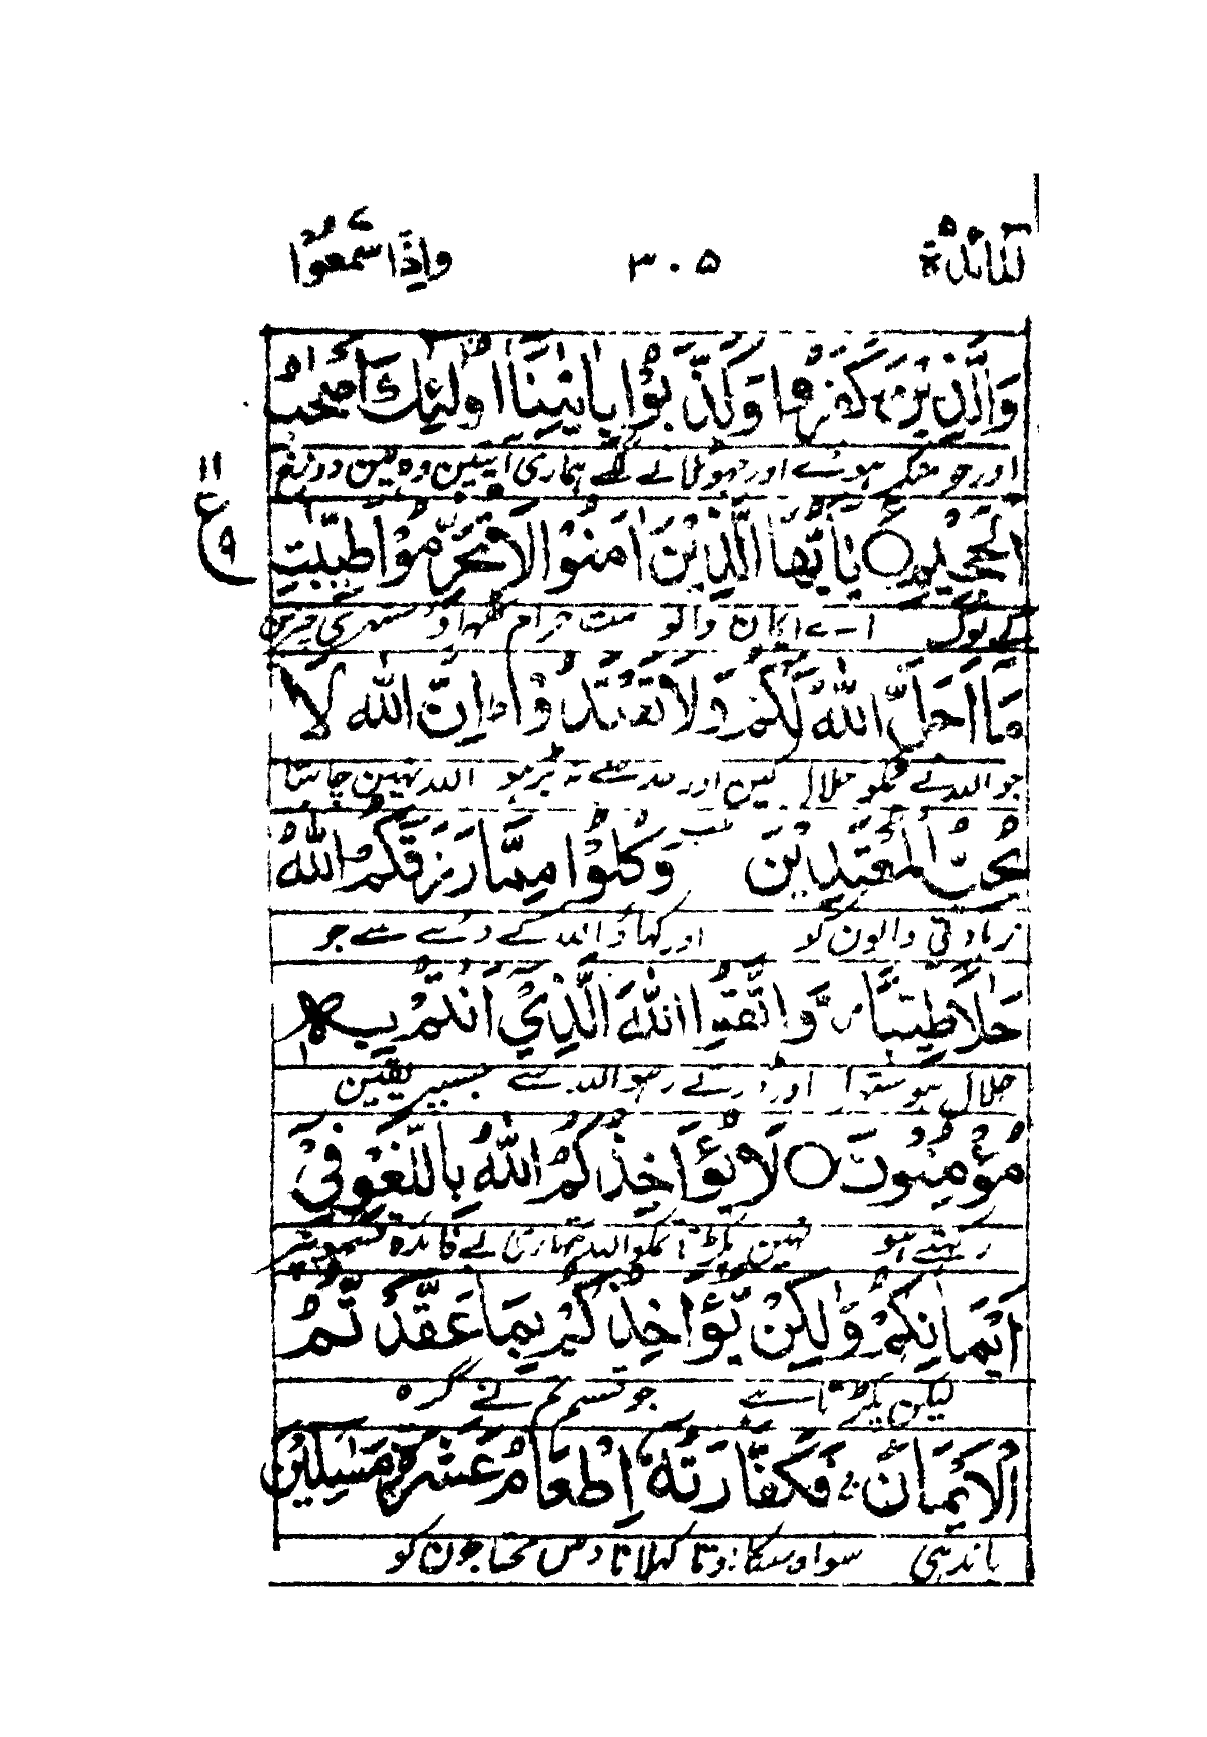 المائدة ۳۰۵ واذا سمعوا
وَالَّذِيْنَ كَفَرُوْا وَكَذَّبُوْا بِاٰيٰتِنَا اُولٰٓئِكَ اَصْحٰبُ
اور جو منکر ہوئے اور جھوٹلانے لگے ہماری آیتین وہ ہین دوزخ
۱۱ ع ۹
الْجَحِيْمِ ○ يٰاَيُّهَا الَّذِيْنَ اٰمَنُوْا لَا تُحَرِّمُوْا طَيِّبٰتِ
کے لوگ اے ایمان والو مت حرام ٹھہراؤ ستھری چیزین
مَا اَحَلَّ اللّٰهُ لَكُمْ وَلَا تَعْتَدُوْا ط اِنَّ اللّٰهَ لَا
جو اللہ نے تمکو حلال کین اور حد سے نہ بڑہو اللہ نہین چاہتا
يُحِبُّ الْمُعْتَدِيْنَ وَكُلُوْا مِمَّا رَزَقَكُمُ اللّٰهُ
زیادتی والون کو اور کہاؤ اللہ کے دئے سے جو
حَلٰلًا طَيِّبًا ص وَّاتَّقُوا اللّٰهَ الَّذِيْ اَنْتُمْ بِهٖ
حلال ہو ستہرا اور ڈرتے رہو اللہ سے جسپر یقین
مُؤْمِنُوْنَ ○ لَا يُؤَاخِذُكُمُ اللّٰهُ بِاللَّغْوِ فِيْ
رکہتے ہو نہین پکڑتا تمکو اللہ تمہاری بے فائدہ قسمونپر
اَيْمَانِكُمْ وَلٰكِنْ يُّؤَاخِذُكُمْ بِمَا عَقَّدْتُّمُ
لیکن پکڑتا ہے جو قسم تم نے گرہ
الْاَيْمَانَ ج فَكَفَّارَتُهٗ اِطْعَامُ عَشَرَةِ مَسٰكِيْنَ
باندہی سو اسکا اوتار کہلانا دس محتاجون کو